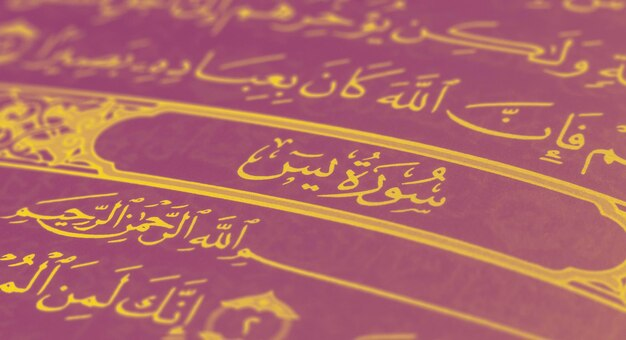 وَلَٰكِن يُؤَخِّرُهُمْ
فَإِنَّ ٱللَّهَ كَانَ بِعِبَادِهِۦ بَصِيرًا
سُورَةُ يسٓ
ٱللَّهِ ٱلرَّحْمَٰنِ ٱلرَّحِيمِ
٢ إِنَّكَ لَمِنَ ٱلْمُ